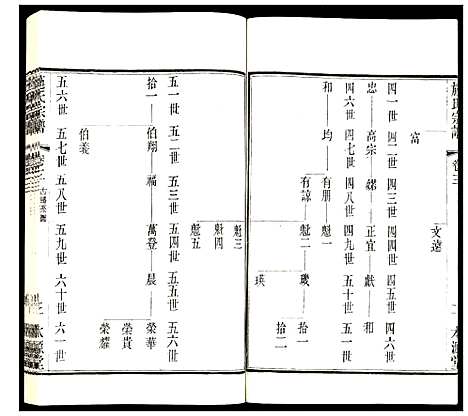 施氏宗譜
卷三
富
文遠
四一世 四二世 四三世 四四世 四五世 四六世
忠 高宗 緒 正宜 獻 和
四六世 四七世 四八世 四九世 五十世 五一世
和 均 有朋 魁一
有諒 魁二 璣 拾一
瑛 拾二
魁三
魁四
魁五
五一世 五二世 五三世 五四世 五五世 五六世
拾一 伯翔 福 萬登 晨 榮華
榮貴
伯義 榮耀
五六世 五七世 五八世 五九世 六十世 六一世